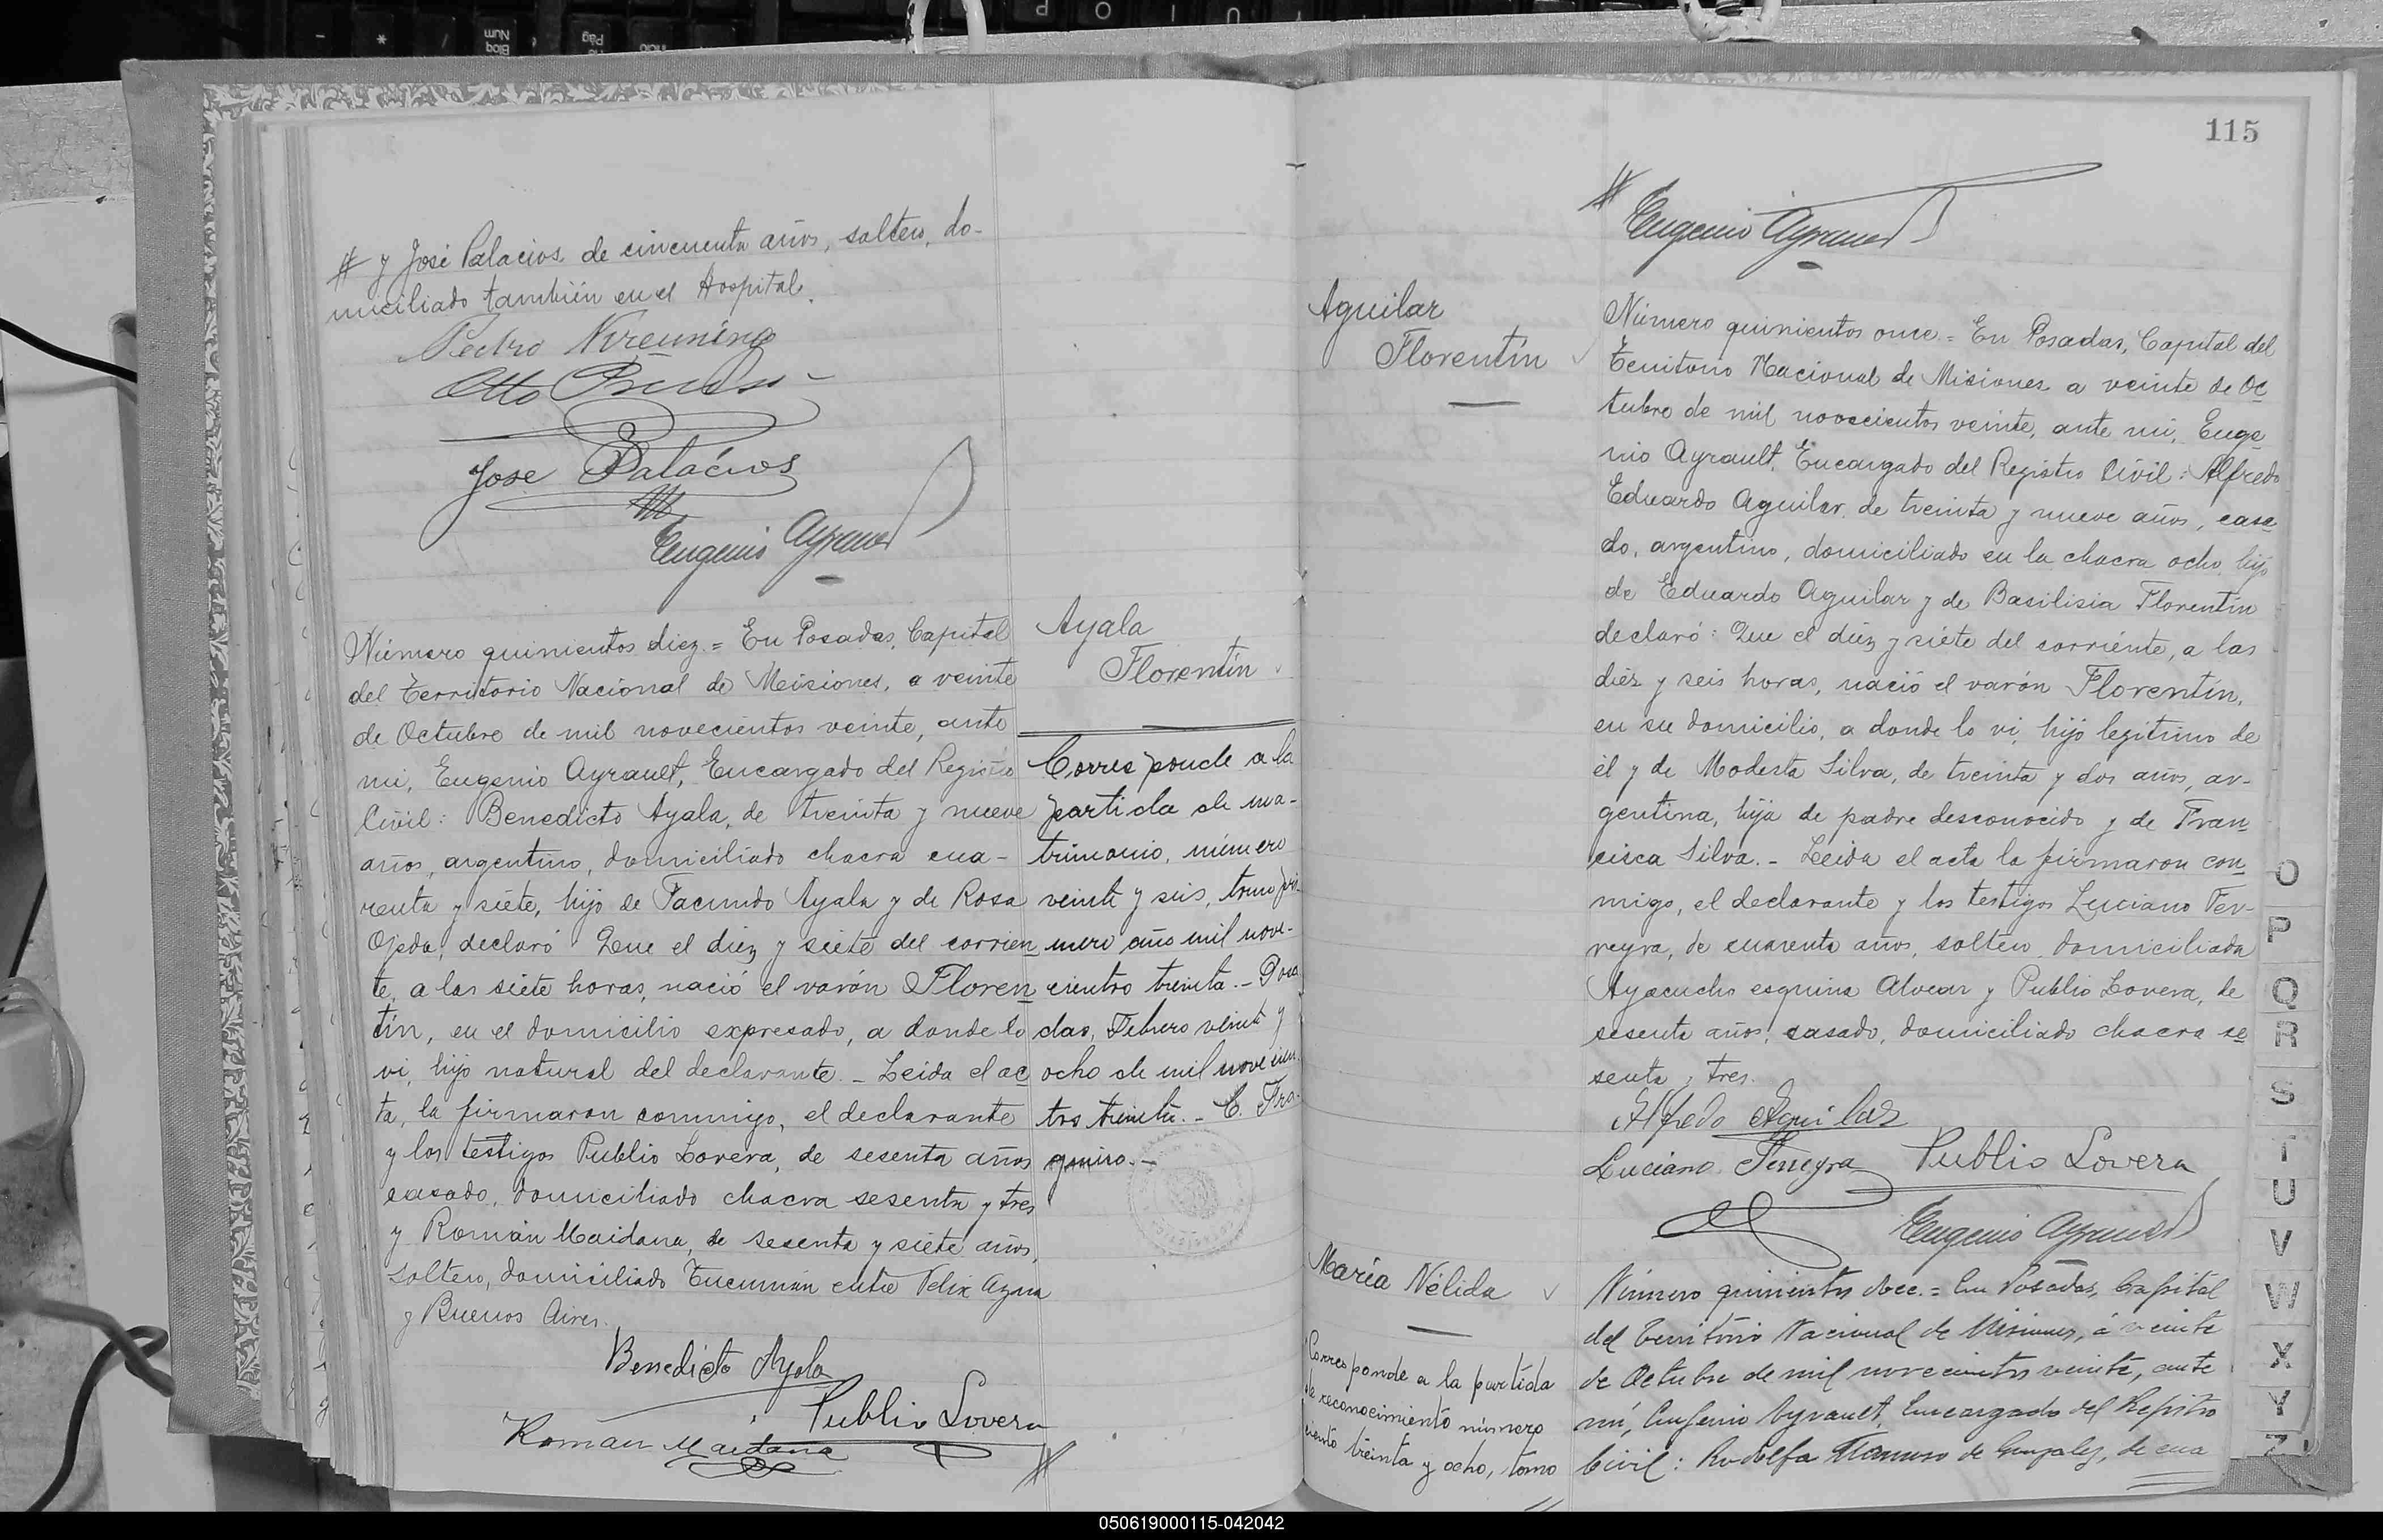 # y José Palacios, de cincuenta años, soltero, do-
miciliado también en el Hospital.
Pedro Kreuning
Otto
José Palácios
Eugenio Ayrault
Número quinientos diez = En Posadas, Capital
del Territorio Nacional de Misiones, a veinte
de Octubre de mil novecientos veinte, ante
mi, Eugenio Ayrault, Encargado del Registro
Civil: Benedicto Ayala, de treinta y nueve
años, argentino, domiciliado chacra cua-
renta y siete, hijo de Facundo Ayala y de Rosa
Ojeda, declaró: Que el diez y siete del corrien
te, a las siete horas, nació el varón Floren
tín, en el domicilio expresado, a donde lo
vi, hijo natural del declarante. - Leida el ac
ta, la firmaron conmigo, el declarante
y los testigos Publio Lovera, de sesenta años
casado, domiciliado chacra sesenta y tres
y Román Maidana, de sesenta y siete años,
soltero, domiciliado Tucumán entre Felix Azara
y Buenos Aires.
Benedicto Ayala
Publio Lovera
Roman Maidana
#
Ayala
Florentín
Corresponde a la
partida de ma-
trimonio, número
veinte y seis, tomo pri-
mero año mil nove-
cientos treinta. - Posa
das, Febrero veinte y
ocho de mil novecien-
tos treinta. - C.
115
# Eugenio Ayrault
Aguilar
Florentín
Número quinientos once. = En Posadas, Capital del
Territorio Nacional de Misiones a veinte de Oc
tubre de mil novecientos veinte, ante mi, Euge
nio Ayrault, Encargado del Registro Civil: Alfredo
Eduardo Aguilar, de treinta y nueve años, casa
do, argentino, domiciliado en la chacra ocho, hijo
de Eduardo Aguilar y de Basilisia Florentín
declaró: Que el diez y siete del corriente, a las
diez y seis horas, nació el varón Florentín,
en su domicilio, a donde lo vi, hijo legítimo de
él y de Modesta Silva, de treinta y dos años, ar-
gentina, hija de padre desconocido y de Fran
cisca Silva. - Leida el acta la firmaron con
migo, el declarante y los testigos Luciano Fer-
reyra, de cuarenta años, soltero, domiciliado
Ayacucho esquina Alvear y Publio Lovera, de
sesenta años, casado, domiciliado chacra se
senta y tres.
Alfredo Aguilar
Luciano Ferreyra Publio Lovera
Eugenio Ayrault
María Nélida
Corresponde a la partida
de reconocimiento número
ciento treinta y ocho, tomo
Número quinientos doce. = En Posadas, Capital
del Territorio Nacional de Misiones, á veinte
de Octubre de mil novecientos veinte, ante
mí, Eugenio Ayrault, Encargado del Registro
Civil: Rodolfa de Gonzalez, de cua
O
P
Q
R
S
T
U
V
W
X
Y
Z
050619000115-042042